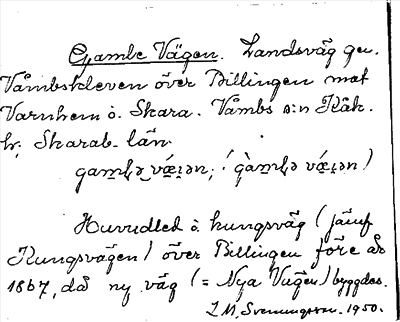 Gamle Vägen. Landsväg ge.
Våmbskleven över Billingen mot
Varnhem o. Skara. Våmbs s:n Kåk.
hr; Skarab. län
Huvudled o. kungsväg (jämf
Kungsvägen) över Billingen före år
1867, då ny väg (= Nya Vägen) byggdes.
L.M. Svenungsson. 1950.